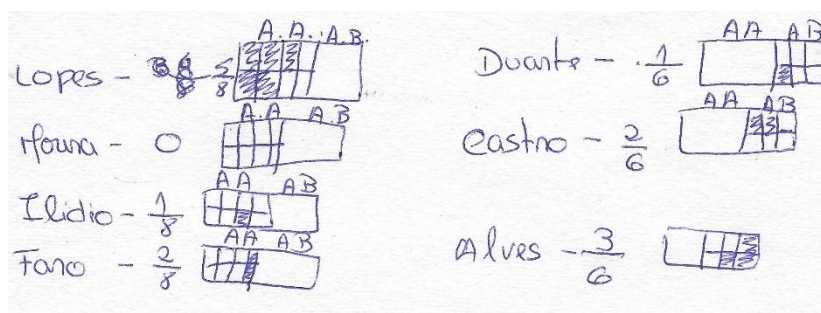 A.A. A.B.
Lopes - 5/8
A.A AB
Moura - 0
AA AB
Ilidio - 1/8
AA AB
Faro - 2/8
AA AB
Duarte - 1/6
AA AB
Castro - 2/6
Alves - 3/6